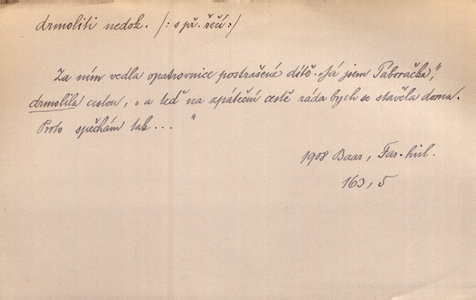 drmoliti nedok. /: s př. řečí :/
Za ním vedla opatrovnice postrašené dítě. „Já jsem Táboračka",
drmolila cestou, „a teď na zpáteční cestě ráda bych se stavěla doma.
Proto spěchám tak... "
1908 Baar, Far. hist.
163, 5